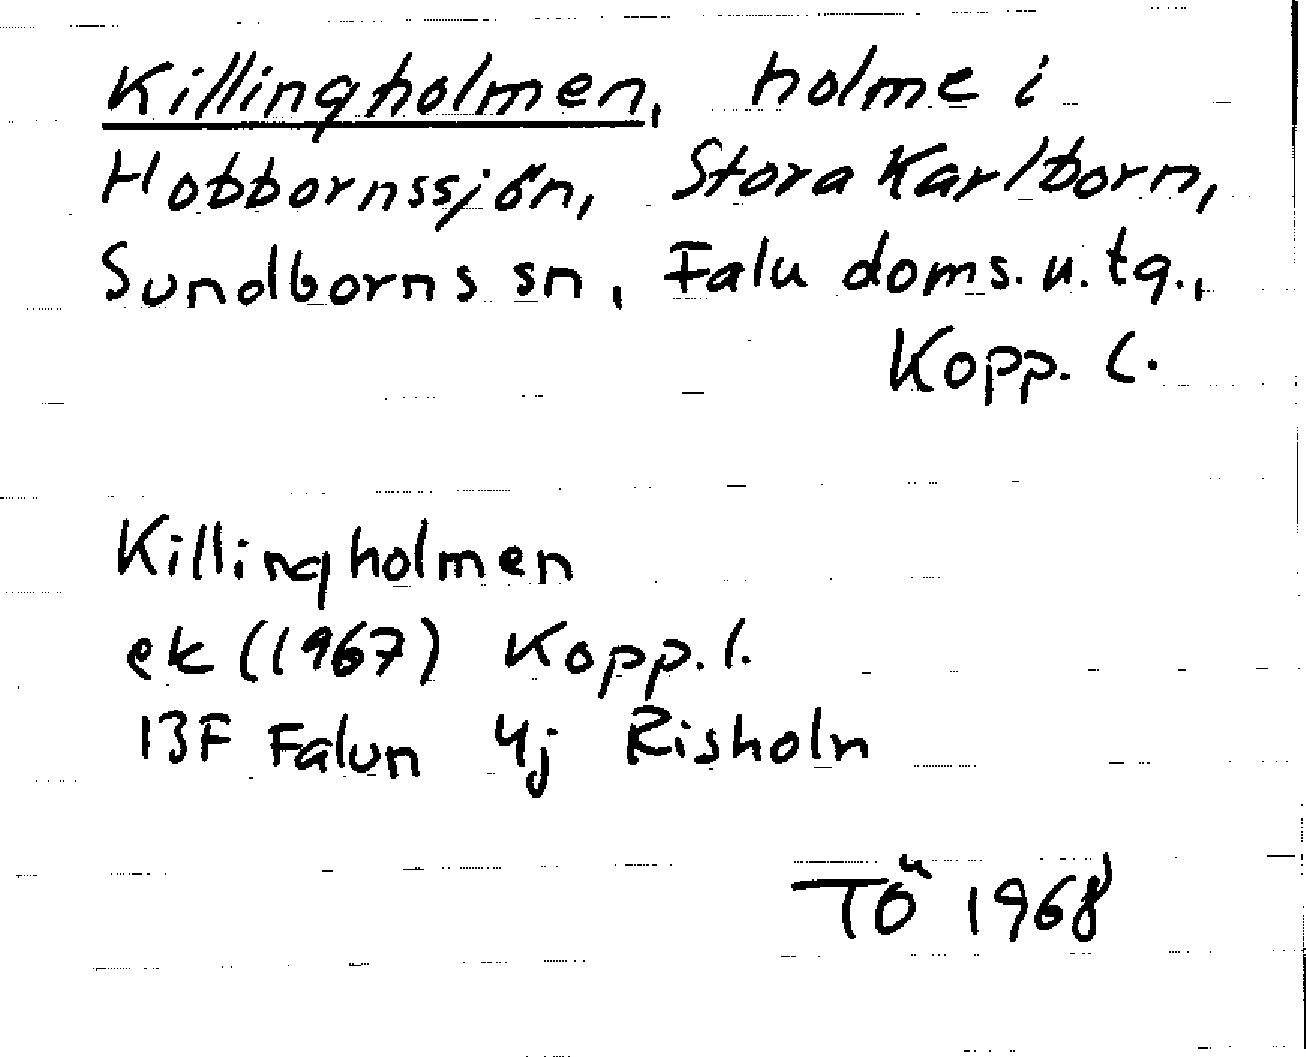 Killingholmen, holme i
Hobbornssjön, Stora Karlborn,
Sundborns sn, Falu doms. n. tg.,
Kopp. l.
Killingholmen
ek (1967) Kopp. l.
13F Falun 4j Risholn
TÖ 1968